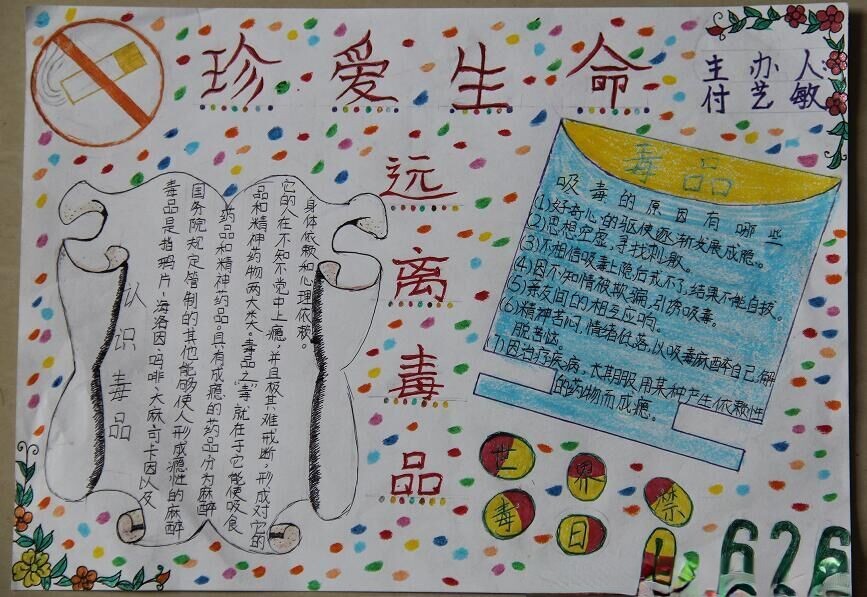 珍爱生命
远离毒品
主办人:
付艺敏
认识毒品
毒品是指鸦片、海洛因、吗啡、大麻、可卡因以及
国务院规定管制的其他能够使人形成瘾性的麻醉
药品和精神药品。具有成瘾的药品分为麻醉
品和精神药物两大类。毒品之“毒”就在于它能使吸食
它的人在不知不党中上瘾,并且极其难戒断,形成对它的
身体依赖和心理依赖。
毒品
吸毒的原因有哪些
(1)好奇心的驱使逐渐发展成瘾。
(2)思想空虚,寻找刺激。
(3)不相信吸毒上隐后戒不了,结果不能自拔。
(4)因不知情被欺骗、引诱吸毒。
(5)亲友间的相互应响。
(6)精神苦闷,情绪低落,以吸毒麻醉自己,解
脱苦恼。
(7)因治疗疾病,长期服用某种产生依赖性
的药物而成瘾。
世界禁
毒日
626